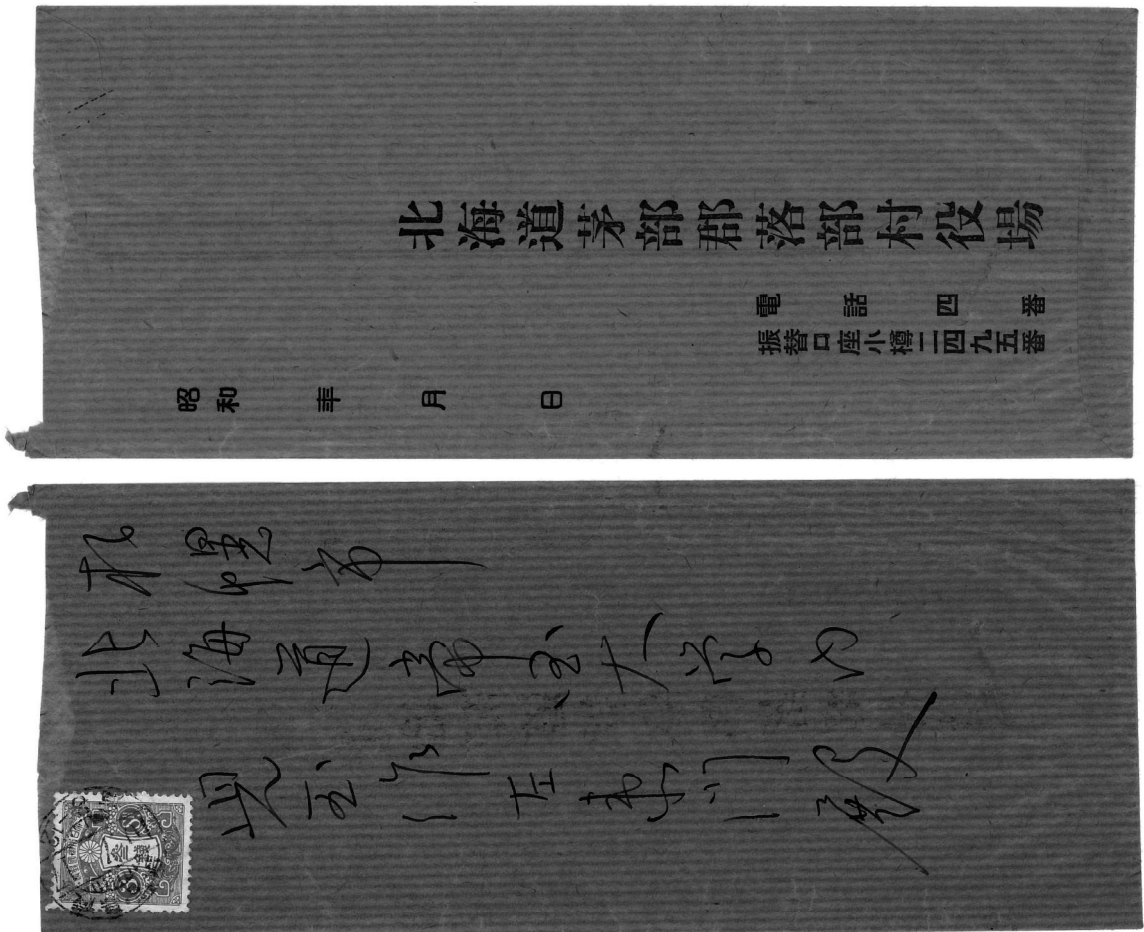 北海道茅部郡落部村役場
電話四番
振替口座小樽二四九五番
昭和 年 月 日
札幌市
北海道帝国大学内
児玉作左衛門殿
参銭